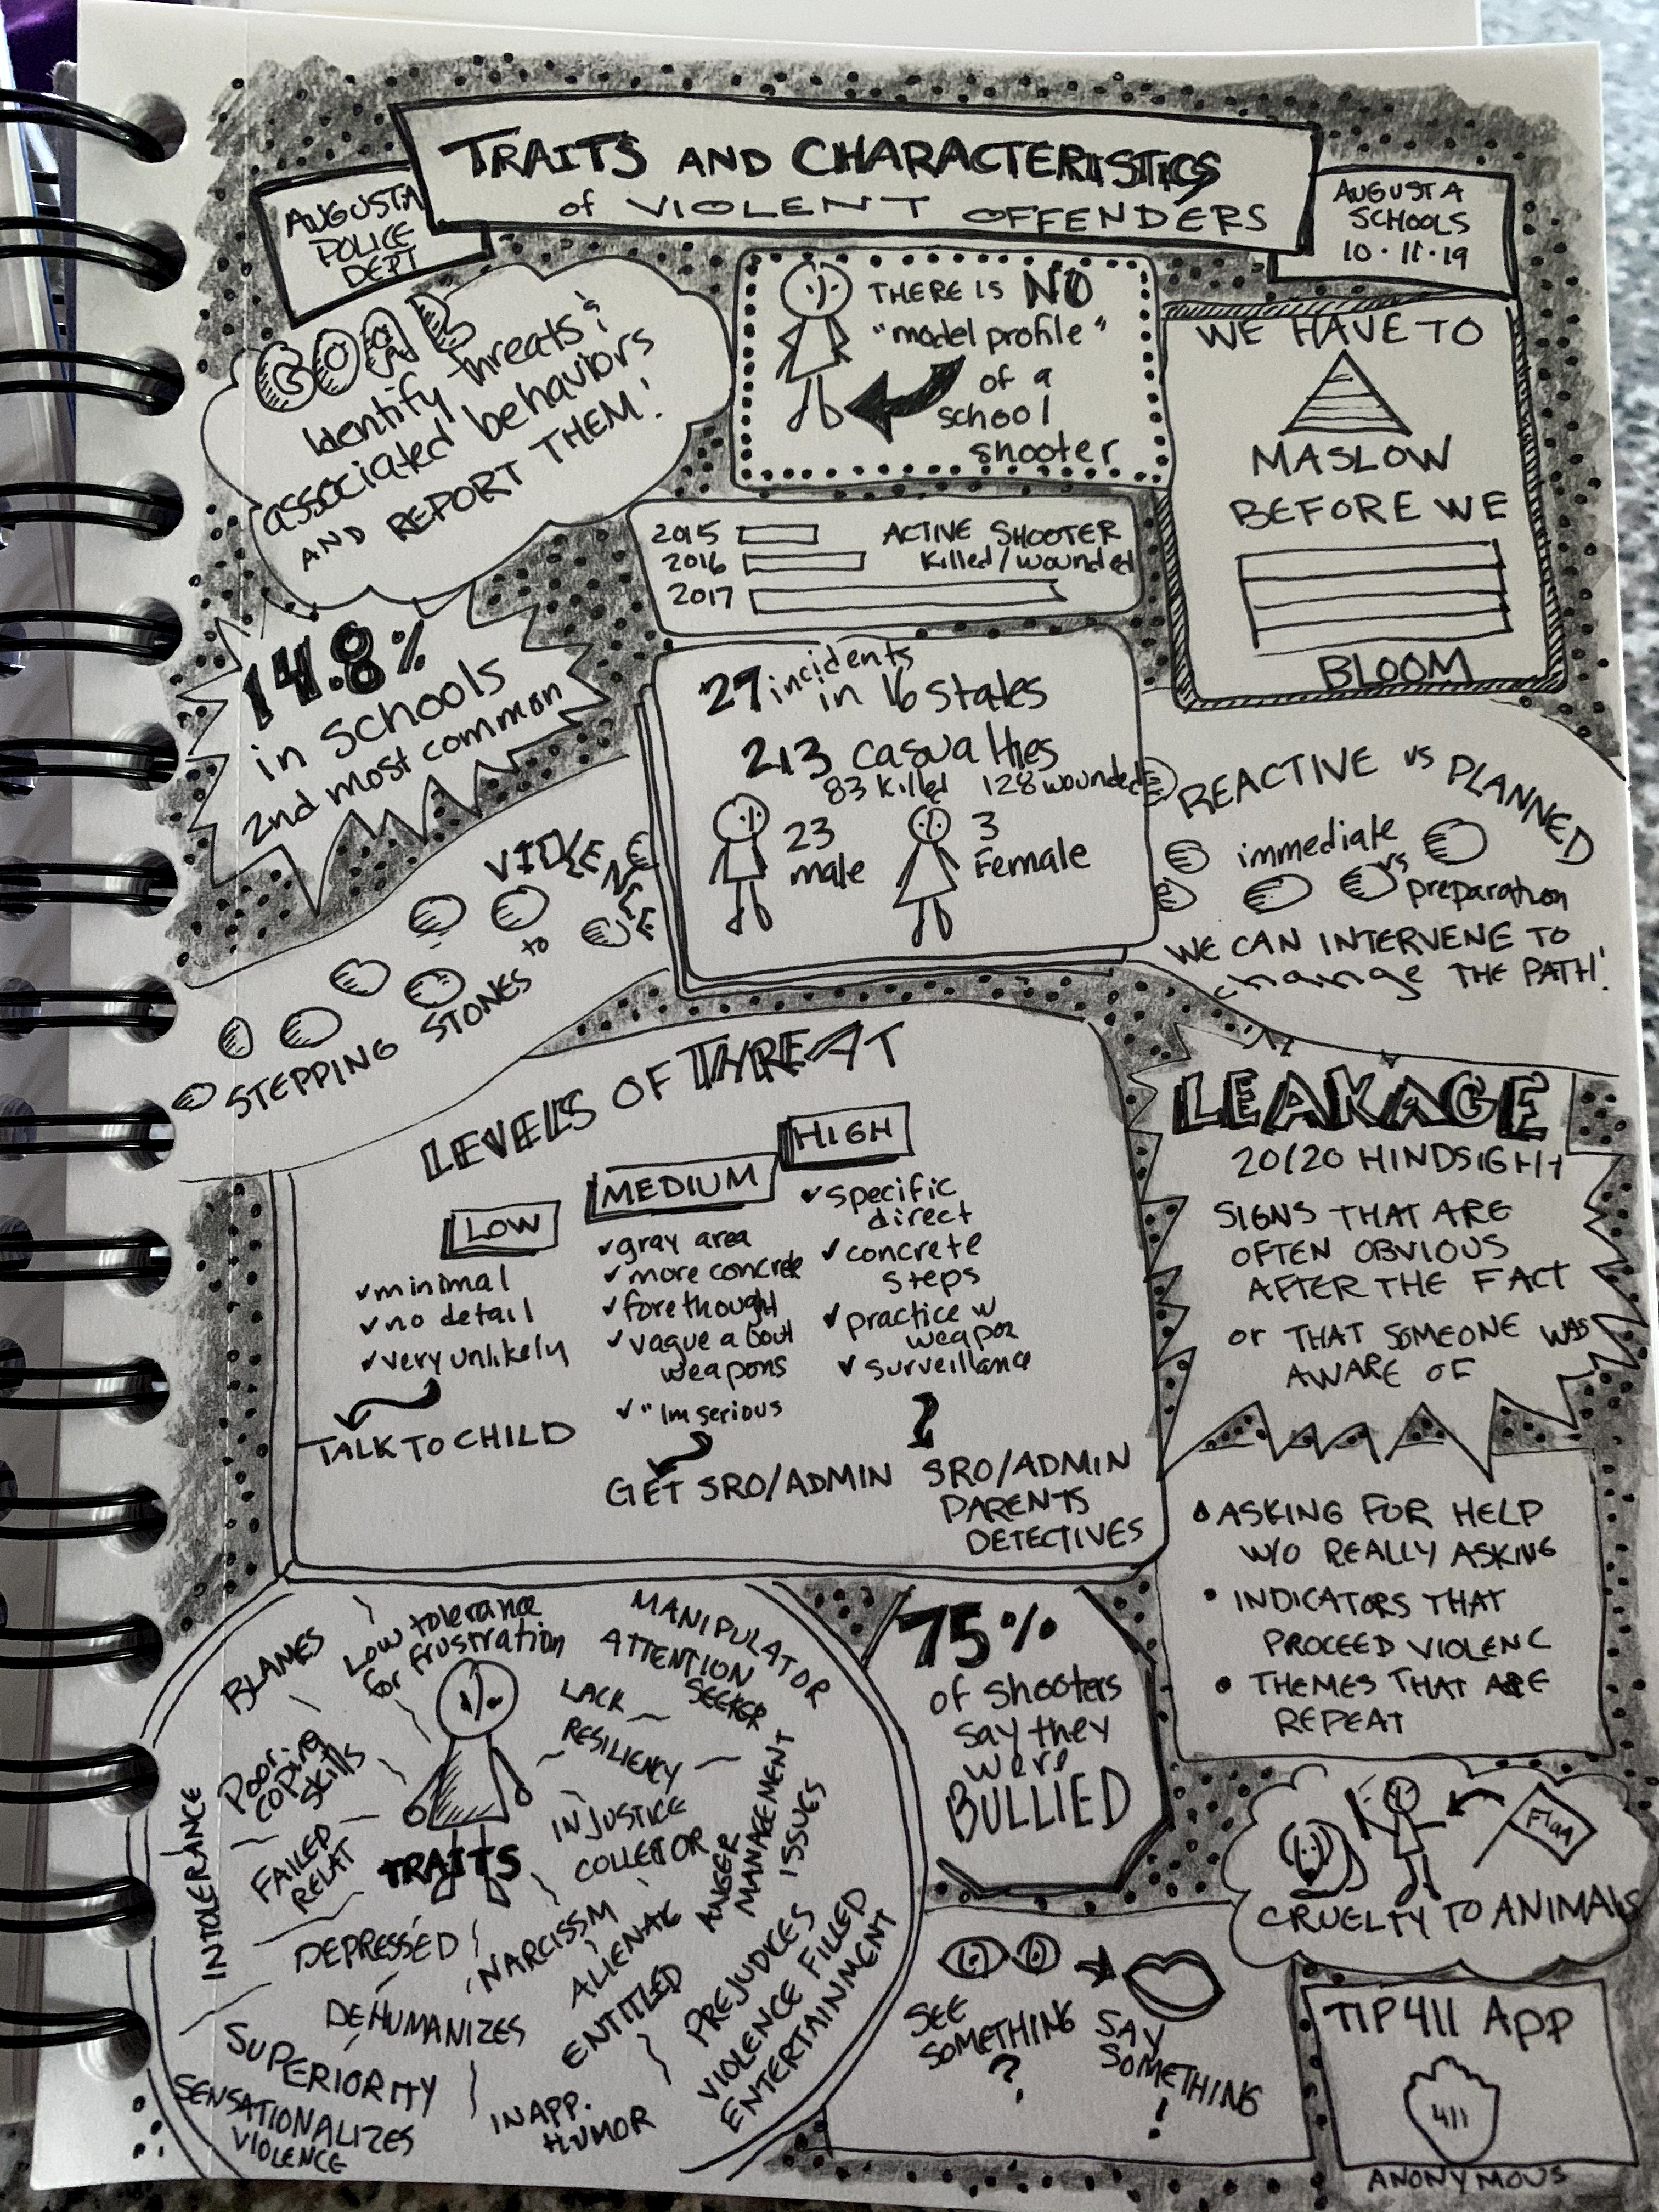 TRAITS AND CHARACTERISTICS
of VIOLENT OFFENDERS
AUGUSTA
POLICE
DEPT
AUGUSTA
SCHOOLS
10·11·19
GOAL
Identify threats &
associated behaviors
AND REPORT THEM!
THERE IS NO
"model profile"
of a
school
shooter
WE HAVE TO
MASLOW
BEFORE WE
BLOOM
2015
2016
2017
ACTIVE SHOOTER
Killed/wounded
14.8%
in Schools
2nd most common
27 incidents
in 16 states
213 casualties
83 killed 128 wounded
23
male
3
Female
STEPPING STONES to
VIOLENCE
REACTIVE vs PLANNED
immediate
vs
preparation
WE CAN INTERVENE TO
change THE PATH!
LEVELS OF THREAT
LOW
✓minimal
✓no detail
✓very unlikely
TALK TO CHILD
MEDIUM
✓gray area
✓more concrete
✓forethought
✓vague about
weapons
✓"Im serious
GET SRO/ADMIN
HIGH
✓specific
direct
✓concrete
steps
✓practice w
weapon
✓surveillance
SRO/ADMIN
PARENTS
DETECTIVES
LEAKAGE
20/20 HINDSIGHT
SIGNS THAT ARE
OFTEN OBVIOUS
AFTER THE FACT
or THAT SOMEONE WAS
AWARE OF
• ASKING FOR HELP
W/O REALLY ASKING
• INDICATORS THAT
PROCEED VIOLENC
• THEMES THAT ARE
REPEAT
TRAITS
BLAMES
Low tolerance
for frustration
MANIPULATOR
ATTENTION
SEEKER
LACK
RESILIENCY
Poor
coping
skills
INTOLERANCE
FAILED
RELAT
INJUSTICE
COLLECTOR
ANGER
MANAGEMENT
ISSUES
DEPRESSED
NARCISSM
ALIENAT
DEHUMANIZES
ENTITLED
PREJUDICES
VIOLENCE FILLED
ENTERTAINMENT
SUPERIORITY
SENSATIONALIZES
VIOLENCE
INAPP.
HUMOR
75%
of shooters
say they
were
BULLIED
Flag
CRUELTY TO ANIMALS
SEE
SOMETHING
?
SAY
SOMETHING
!
TIP411 APP
411
ANONYMOUS